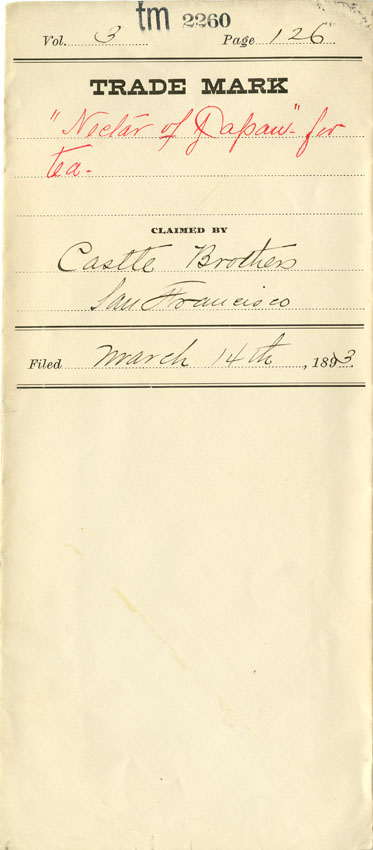 tm 2260
Vol. 3 Page 126
TRADE MARK
"Nectar of Japan" for
tea.
CLAIMED BY
Castle Brothers
San Francisco
Filed March 14th, 1893.